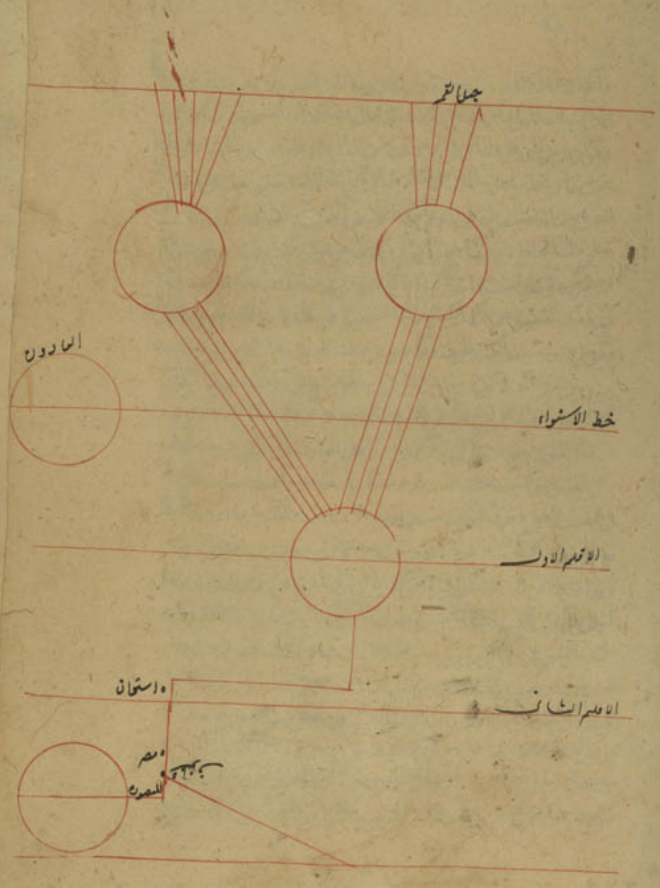 جبل القمر
المادون
خط الاستواء
الاقليم الاول
اسوان
الاقليم الثاني
مصر
المنصورة